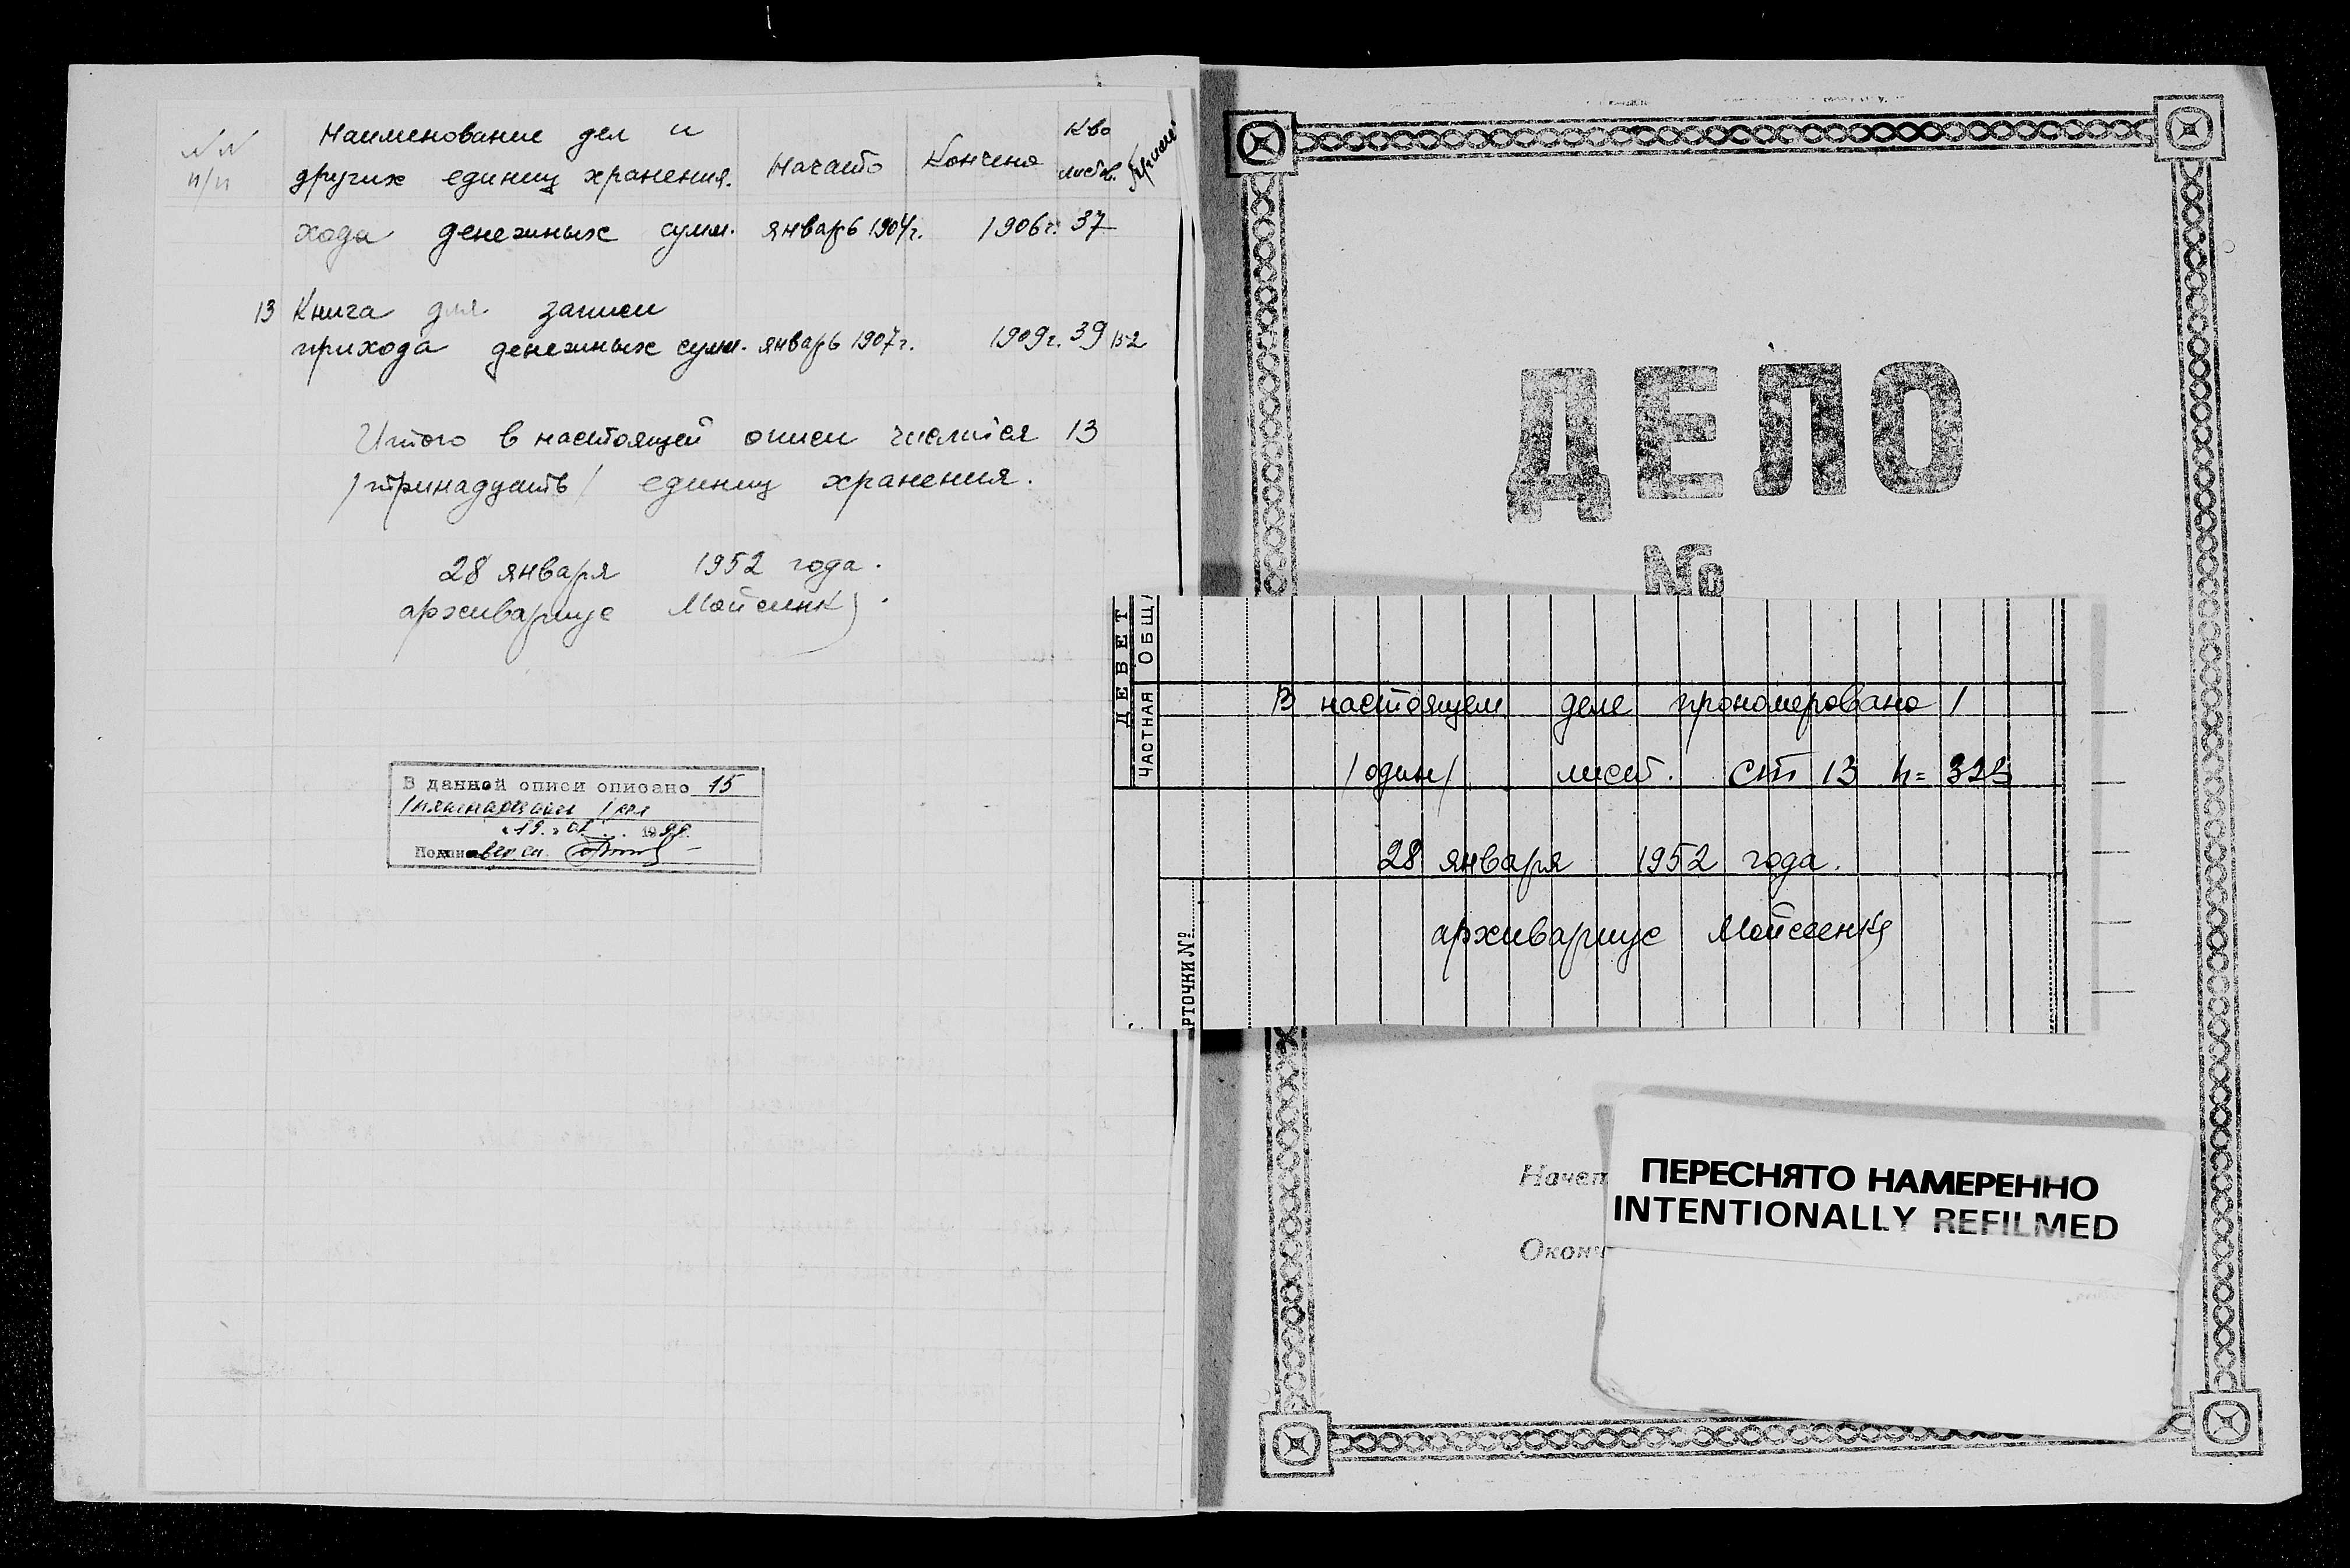 №№ п/п
Наименование дел и
других единиц хранения.
Начато
Кончено
К-во
листов.
хода денежных сумм. январь 1904г. 1906г. 37
13 Книга для записи
прихода денежных сумм. январь 1907г. 1909г. 39
Итого в настоящей описи числится 13
/тринадцать/ единиц хранения.
28 января 1952 года.
архивариус Мойсеенко
В данной описи описано 15
/пятнадцать/
Подпись
ДЕЛО
№
ДЕБЕТ
ОБЩА
ЧАСТНАЯ
РТОЧКИ №
В настоящем деле прономеровано 1
/один/ лист. СТ 13 п= 323
28 января 1952 года.
архивариус Мойсеенко
Начат
Оконч
ПЕРЕСНЯТО НАМЕРЕННО
INTENTIONALLY REFILMED